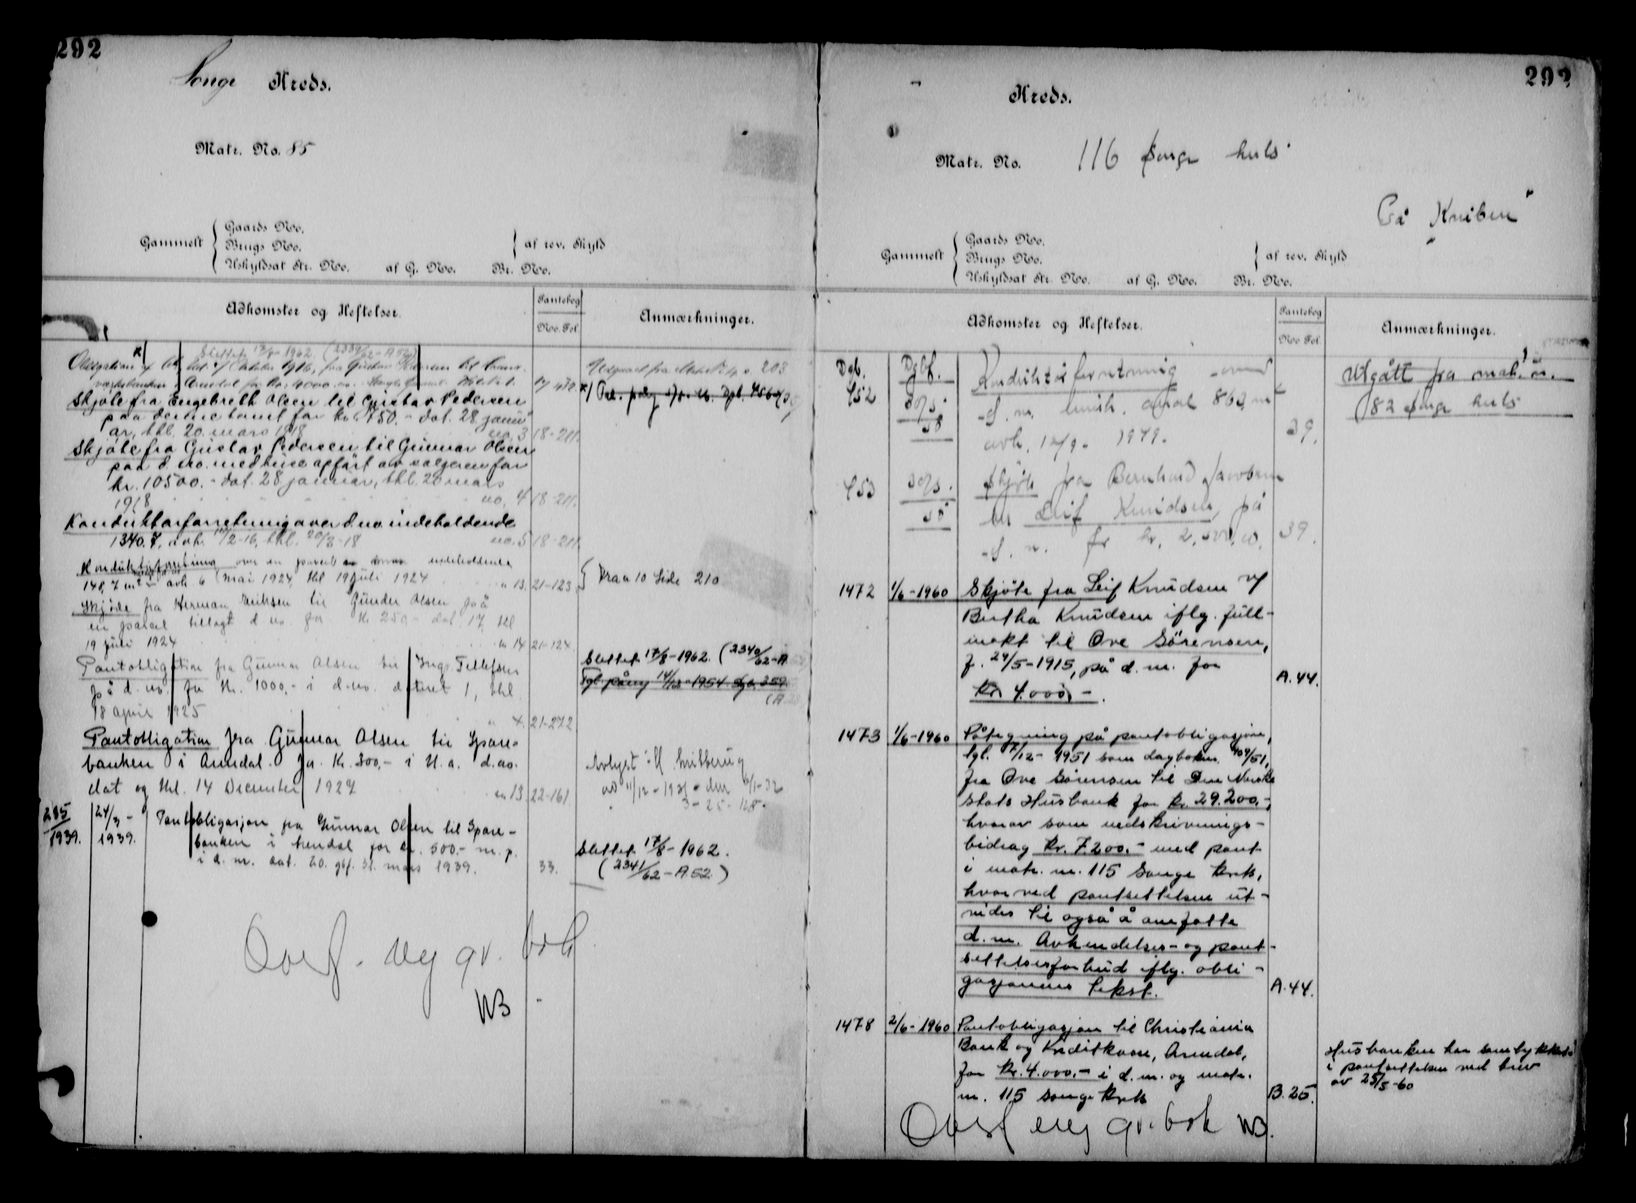 292
Songe Kreds.
Matr. No. 85
Gammelt
Gaards No.
Brugs No.
Uskyldsat Nr. No. af G. No. Br. No.
af rev. Skyld
Adkomster og Heftelser.
Pantebog
No. Fol.
Anmærkninger.
Slettet 1962
Obligation
17 470
203
Skjøte fra Engebreth Olsen til Gustav Pedersen
paa denne tomt for kr. 750.- dat. 28 janu-
ar, thl. 20 mars 1918 no. 3 18-211.
Skjøte fra Gustav Pedersen til Gunnar Olsen
paa d. no. med huse opført av sælgeren for
kr. 10500.- dat. 28 januar, thl. 20 mars
1918 no. 4 18-211.
Konduktørforretning over d. no indeholdende
1340.7, avh. 11/2-16, thl. 20/3-18 no. 5 18-211.
Konduktørforretning over en parcel indeholdende
148,7 m² avh 6 mai 1924 thl 19 juli 1924 n 13. 21-123
Fra no 10 Side 210
Skjøde fra Herman Eriksen til Gunder Olsen på
en parcel tillagt d no. for kr 250,- dat 17, thl
19 juli 1924 n 14 21-124
Pantobligation fra Gunnar Olsen til Inga Tellefsen
på d. no. for Kr. 1000,- i d. no. datert 1, thl
18 april 1925 21-272
Slettet 17/8-1962. (2340/62-A
Tgl påny 14/12-1954
Pantobligation fra Gunnar Olsen til Spare-
banken i Arendal. for Kr. 500,- i H. a. d. no.
dat og thl. 14 December 1927 n 13 22-161
285/1939. 24/3-1939. Pantobligasjon fra Gunnar Olsen til Spare-
banken i Arendal for kr. 500.- m. p.
i d. nr. dat. 20. gbf. 31. mars 1939. 33.
Slettet 17/8-1962.
(2341/62-A 52)
Overf. ny gr. bok
WB
292
Kreds.
Matr. No. 116 Songe krets
"På Kniben"
Gammelt
Gaards No.
Brugs No.
Uskyldsat Nr. No. af G. No. Br. No.
af rev. Skyld
Adkomster og Heftelser.
Pantebog
No Fol
Anmærkninger.
Dgb. Dgbf.
952 Konduktørforretning over
d. nr. 862 m²
avh. 12/9- 1949. 39.
Utgått fra matr. nr.
82 Songe krets
953 Skjøte fra Bernhard Jacobsen
til Leif Knudsen, på
d. nr. for kr. 2.500,00. 39.
1472 1/6-1960 Skjøte fra Leif Knudsen v/
Bertha Knudsen iflg. full-
makt til Ove Sørensen,
f. 24/5-1915, på d. nr. for
kr. 4.000,-. A.44.
1473 1/6-1960 Påtegning på pantobligasjon,
tgl. 7/12-1951 som dagboknr.
fra Ove Sørensen til Den Norske
Stats Husbank for kr. 29.200.-,
hvorav som nedskrivnings-
bidrag kr. 7.200.- med pant
i matr. nr. 115 Songe krets,
hvorved pantsettelsen ut-
vides til også å omfatte
d. nr. Avhendelses- og pant-
settelsesforbud iflg. obli-
gasjonens tekst. A.44.
1478 2/6-1960 Pantobligasjon til Christiania
Bank og Kreditkasse, Arendal,
for kr. 4.000.- i d. nr. og matr.
nr. 115 Songe krets B.25.
Husbanken har samtykket
i pantsettelsen ved brev
av 25/5-60
Overf ny gr. bok WB.